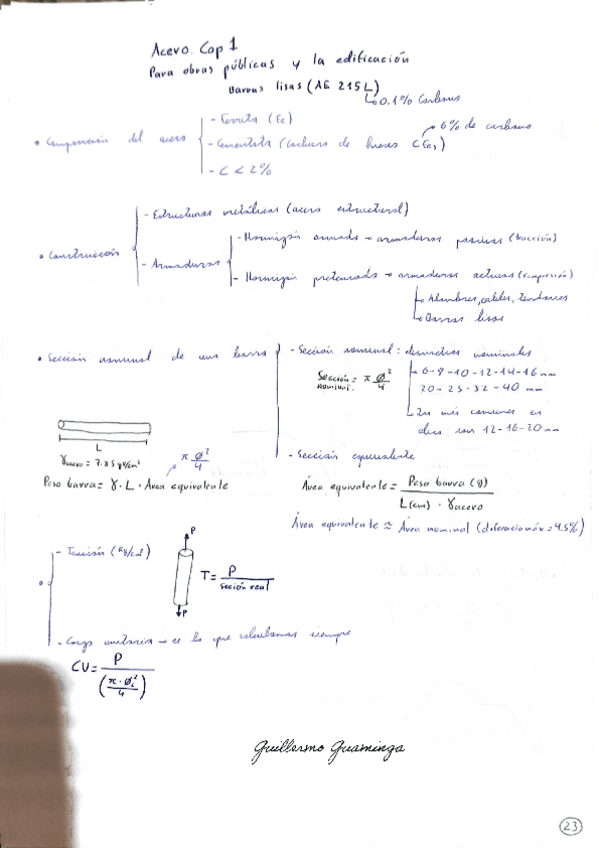 Acero. Cap 1
Para obras públicas y la edificación
Barras lisas (AE 215L)
↳ 0.1% Carbono
• Composición del acero
- Ferrita (Fe)
- Cementita (Carburo de hierro CFe3)
↗ 6% de carbono
- C < 2%
• Construcción
- Estructuras metálicas (acero estructural)
- Armaduras
- Hormigón armado → armaduras pasivas (tracción)
- Hormigón pretensado → armaduras activas (compresión)
↳ Alambres, cables, tendones
↳ Barras lisas
• Sección nominal de una barra
- Sección nominal: diámetros nominales
Sección nominal = π Ø²/4
6-8-10-12-14-16 mm
20-25-32-40 mm
↳ más comunes en
obra son 12-16-20 mm
L
γacero = 7.85 gr/cm³
π Ø²/4
Peso barra = γ · L · Área equivalente
- Sección equivalente
Área equivalente = Peso barra (g) / L(cm) · γacero
Área equivalente ≈ Área nominal (diferencia máx = 4.5%)
- Tensión (Kg/cm²)
P
T = P / Sección real
P
- Carga unitaria → es lo que calculamos siempre
CU = P / (π · Ø²/4)
Guillermo Guaminga
23